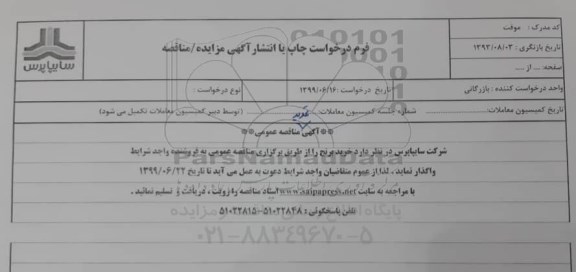 کد مدرک : موقت
فرم درخواست چاپ یا انتشار آگهی مزایده/مناقصه
تاریخ بازنگری : ۱۳۹۳/۰۸/۰۳
سایپاپرس
صفحه: ... از ....
واحد درخواست کننده : بازرگانی
تاریخ درخواست : ۱۳۹۹/۰۶/۱۶
نوع درخواست :
تاریخ کمیسیون معاملات: شماره جلسه کمیسیون معاملات: (توسط دبیر کمیسیون معاملات تکمیل می شود)
**آگهی مناقصه عمومی**
شرکت سایپاپرس در نظر دارد خرید برنج را از طریق برگزاری مناقصه عمومی به فروشنده واجد شرایط
واگذار نماید . لذا از عموم متقاضیان واجد شرایط دعوت به عمل می آید تا تاریخ ۱۳۹۹/۰۶/۲۲
با مراجعه به سایت www.saipapress.net اسناد مناقصه را رویت ، دریافت و تسلیم نمائید .
تلفن پاسخگوئی : ۵۱۰۲۲۸۴۸-۵۱۰۲۲۸۱۵
ParsNamadData
۰۲۱-۸۸۳۴۹۶۷۰-۵